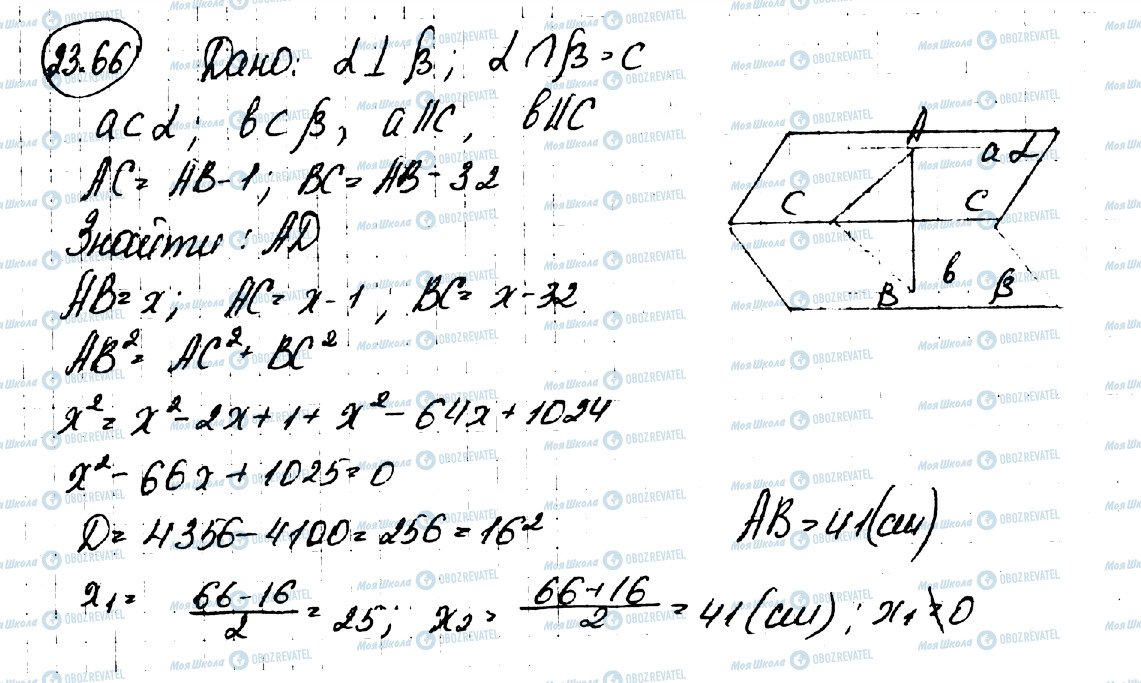 23.66 Дано: α⊥β; α∩β=C
a⊂α; b⊂β, a∥C, b∥C
AC = AB-1; BC = AB-32
Знайти: AD
AB=x; AC=x-1; BC=x-32
AB²= AC²+ BC²
x²=x²-2x+1+x²-64x+1024
x²-66x+1025=0
D=4356-4100=256=16²
AB=41(см)
x₁= (66-16)/2 = 25; x₂= (66+16)/2 = 41(см); x₁≠0
A
a α
C C
b
B β
МояШкола OBOZREVATEL